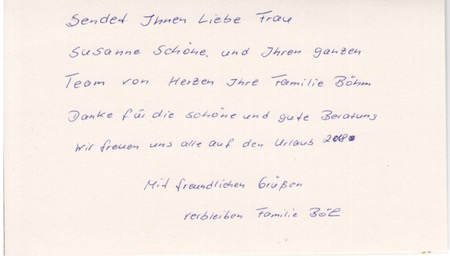 Sendet Ihnen Liebe Frau
Susanne Schöne, und Ihren ganzen
Team von Herzen Ihre Familie Böhm
Danke für die schöne und gute Beratung
Wir freuen uns alle auf den Urlaub
Mit freundlichen Grüßen
verbleiben Familie